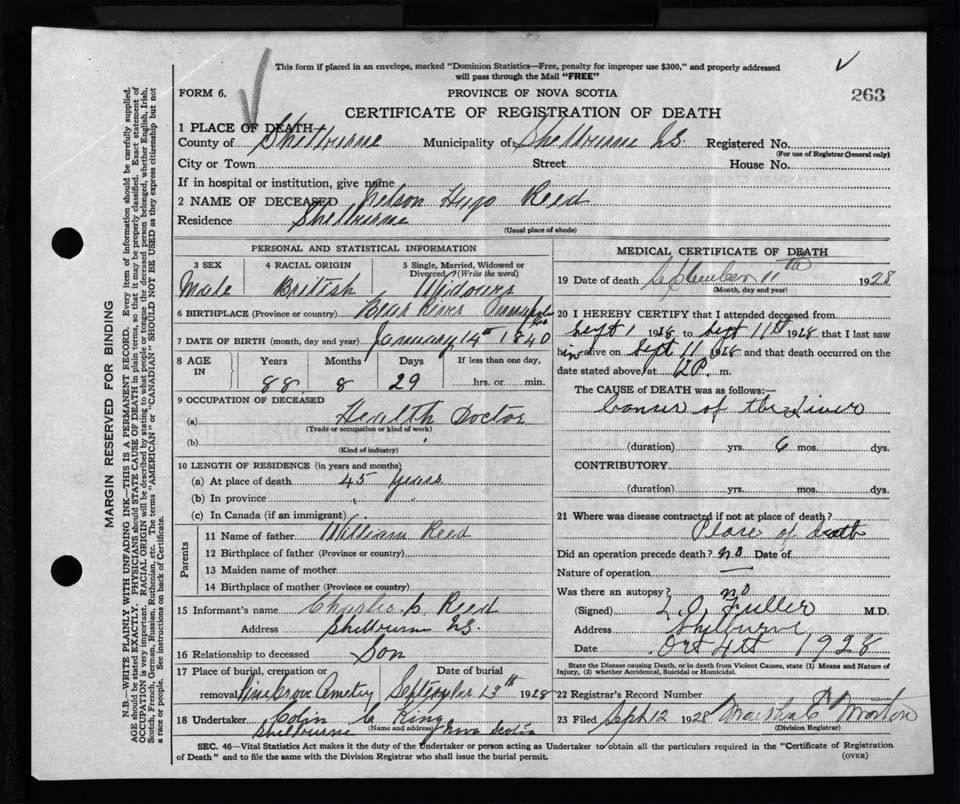 This form if placed in an envelope, marked "Dominion Statistics—Free, penalty for improper use $300," and properly addressed
will pass through the Mail "FREE"
FORM 6.
PROVINCE OF NOVA SCOTIA
263
CERTIFICATE OF REGISTRATION OF DEATH
1 PLACE OF DEATH—
County of Shelburne Municipality of Shelburne N.S. Registered No.
(For use of Registrar General only)
City or Town Street House No.
If in hospital or institution, give name
2 NAME OF DECEASED Nelson Hugo Reed
Residence Shelburne
(Usual place of abode)
PERSONAL AND STATISTICAL INFORMATION
3 SEX 4 RACIAL ORIGIN 5 Single, Married, Widowed or Divorced? (Write the word)
Male British Widower
6 BIRTHPLACE (Province or country) Bear River Annapolis
7 DATE OF BIRTH (month, day and year) January 14th 1840
8 AGE IN Years Months Days If less than one day,
88 8 29 hrs. or min.
9 OCCUPATION OF DECEASED
(a) Health Doctor
(Trade or occupation or kind of work)
(b)
(Kind of industry)
10 LENGTH OF RESIDENCE (in years and months)
(a) At place of death 45 years
(b) In province
(c) In Canada (if an immigrant)
Parents
11 Name of father William Reed
12 Birthplace of father (Province or country)
13 Maiden name of mother
14 Birthplace of mother (Province or country)
15 Informant's name Charles C Reed
Address Shelburne N.S.
16 Relationship to deceased Son
17 Place of burial, cremation or removal Date of burial
Pine Grove Cemetery September 13th 1928
18 Undertaker Colin C King
(Name and address)
Shelburne Nova Scotia
MEDICAL CERTIFICATE OF DEATH
19 Date of death September 11th 1928
(Month, day and year)
20 I HEREBY CERTIFY that I attended deceased from
Sept 1 1928 to Sept 11th 1928 that I last saw
him alive on Sept 11 1928 and that death occurred on the
date stated above, at 12 P. m.
The CAUSE of DEATH was as follows:—
Cancer of the Liver
(duration) yrs. 6 mos. dys.
CONTRIBUTORY
(duration) yrs. mos. dys.
21 Where was disease contracted if not at place of death?
Place of death
Did an operation precede death? no Date of
Nature of operation —
Was there an autopsy? no
(Signed) L. O. Fuller M.D.
Address Shelburne
Date Oct 4th 1928
State the Disease causing Death, or in death from Violent Causes, state (1) Means and Nature of
Injury, (2) whether Accidental, Suicidal or Homicidal.
22 Registrar's Record Number
23 Filed Sept 12 1928 Morton
(Division Registrar)
SEC. 46—Vital Statistics Act makes it the duty of the Undertaker or person acting as Undertaker to obtain all the particulars required in the "Certificate of Registration
of Death" and to file the same with the Division Registrar who shall issue the burial permit.
(OVER)
MARGIN RESERVED FOR BINDING
N.B.—WRITE PLAINLY WITH UNFADING INK—THIS IS A PERMANENT RECORD. Every item of information should be carefully supplied.
AGE should be stated EXACTLY. PHYSICIANS should STATE CAUSE OF DEATH in plain terms, so that it may be properly classified. Exact statement of
OCCUPATION is very important. RACIAL ORIGIN will be described by stating to what people or tongue the deceased person belonged, whether English, Irish,
Scotch, French, German, Russian, Ruthenian, etc. The terms "AMERICAN" or "CANADIAN" SHOULD NOT BE USED as they express citizenship but not
a race or people. See instructions on back of Certificate.